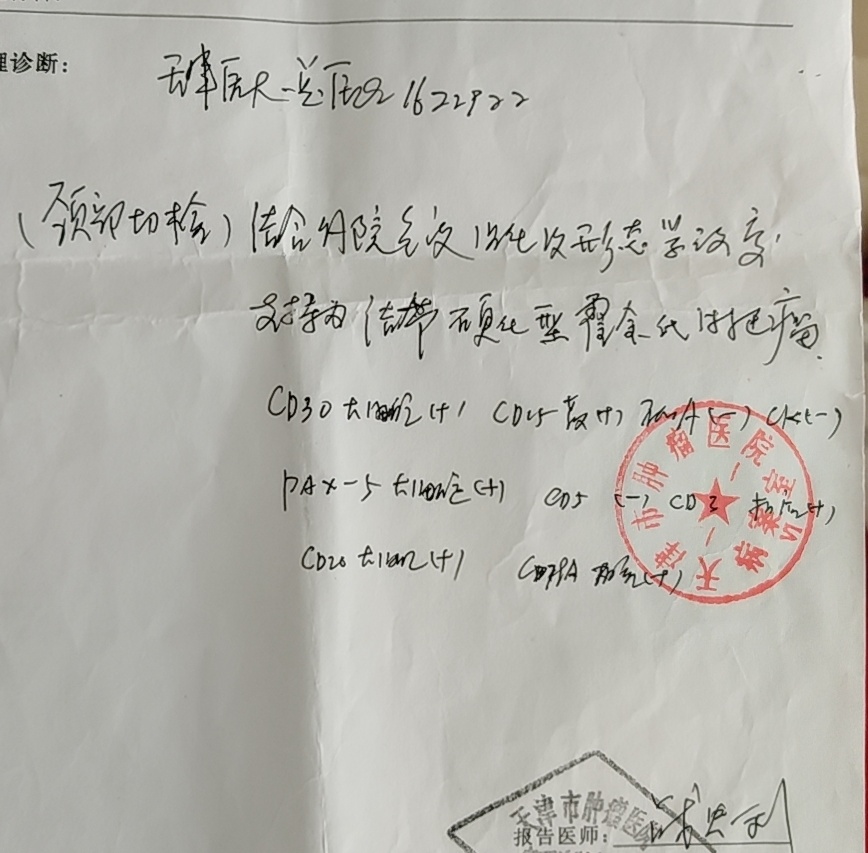 理诊断:
天津医大总医院 1622922
(颈部切检)结合外院免疫组化及形态学改变,
支持为结节硬化型霍奇金氏淋巴瘤
CD30大细胞(+) CD15散(+) (-) CK(-)
PAX-5大细胞(+) CD5 (-) CD3 (+)
CD20大细胞(+) CD79A (+)
天津市肿瘤医院
病案室
天津市肿瘤医院
报告医师: